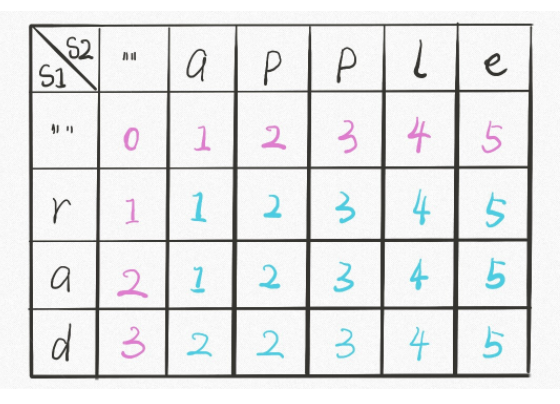 S1 S2 "" a p p l e
"" 0 1 2 3 4 5
r 1 1 2 3 4 5
a 2 1 2 3 4 5
d 3 2 2 3 4 5